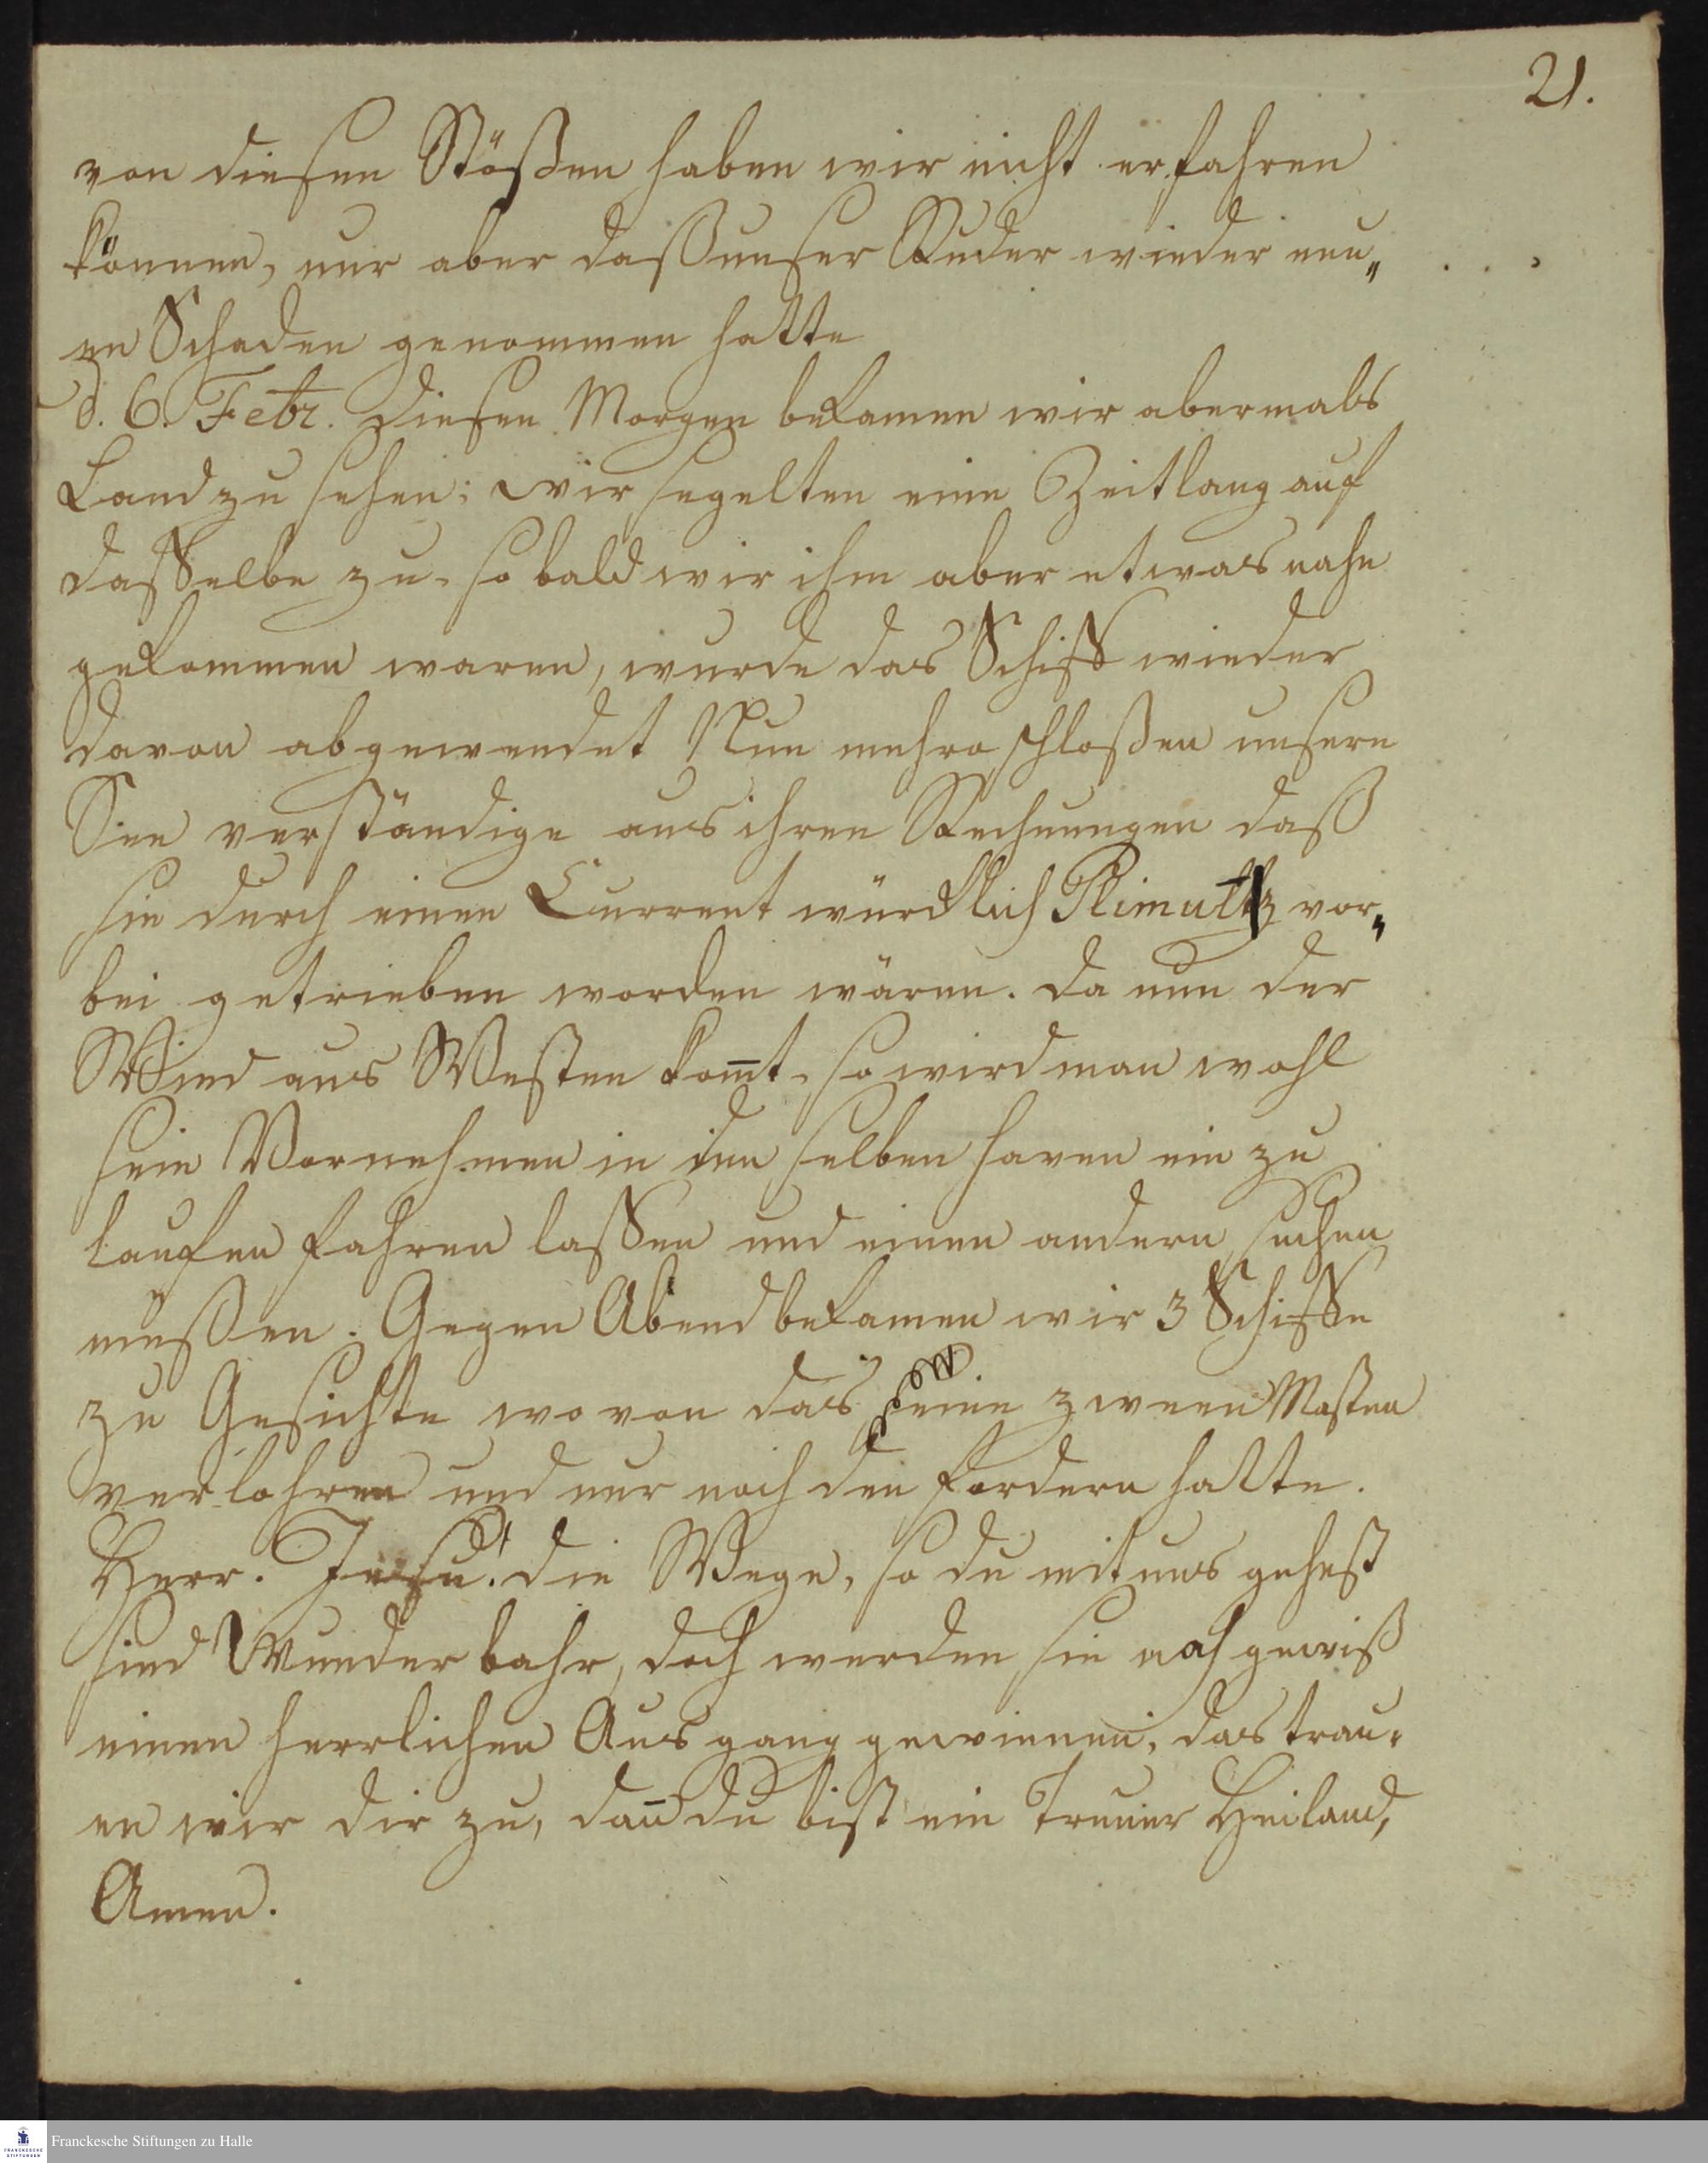 21.
von diesen Stößen haben wir nicht erfahren
können, nur aber daß unser Ruder wieder neu„
en Schaden genommen hatte
d. 6. Febr. Diesen Morgen bekamen wir abermals
Land zu sehen; wir segelten eine Zeitlang auf
dasselbe zu, so bald wir ihm aber etwas nahe
gekommen waren, wurde das Schiff wieder
davon abgewendet Nun mehro schloßen unsere
See verständige aus ihren Rechnungen daß
sie durch einen Current würcklich Plimutz vor„
bei getrieben worden wären. da nun der
Wind aus Westen kom̅t, so wird man wohl
sein Vornehmen in den selben haven ein zu
laufen fahren lassen und einen andern suchen
müßen. Gegen Abend bekamen wir 3 Schiffe
zu Gesichte wo von das eine zween Masten
verlohren und nur noch den fordern hatte.
Herr. Jesu! die Wege, so du mit uns gehest
sind Wunderbahr, doch werden sie noch gewiß
einen herrlichen Ausgang gewinnen, das trau„
en wir dir zu, dan̅ du bist ein treuer Heiland,
Amen.
Franckesche Stiftungen zu Halle